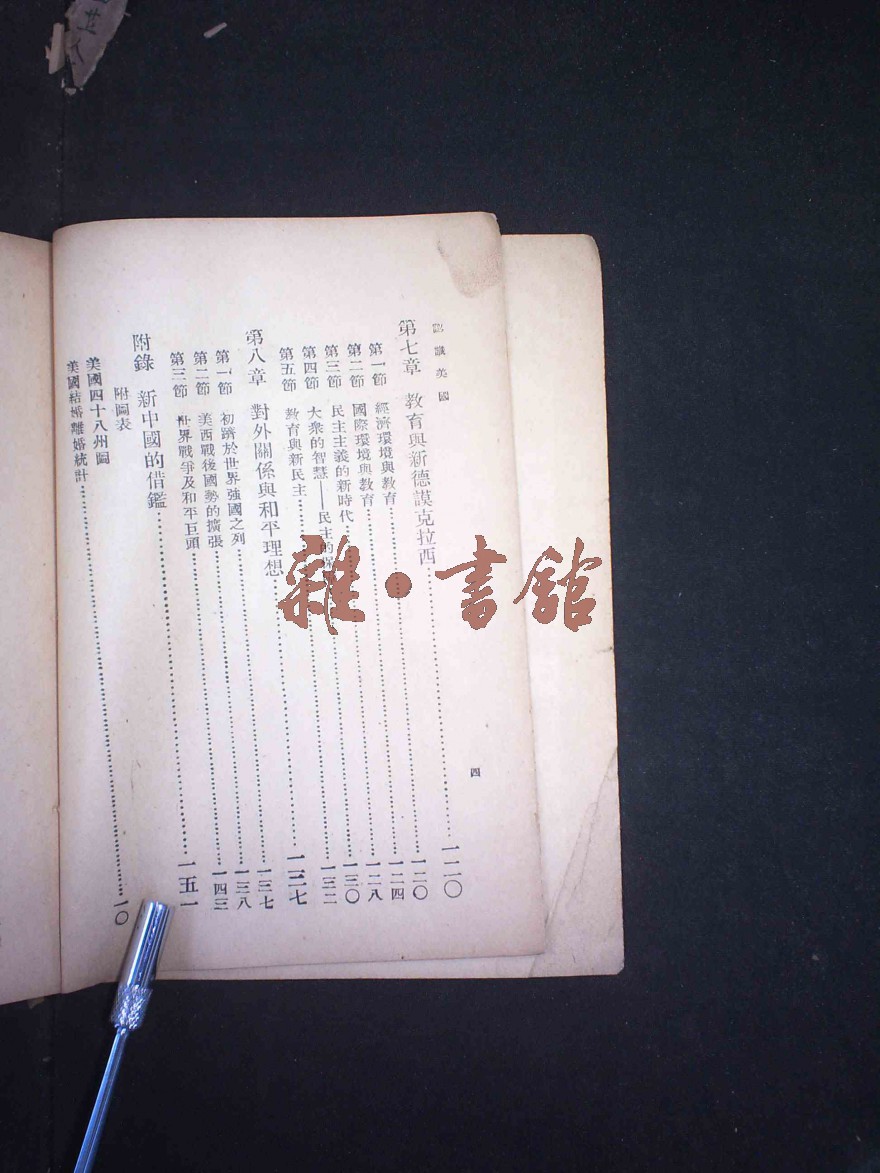 認識美國
四
第七章 教育與新德謨克拉西……一二〇
第一節 經濟環境與教育……一二〇
第二節 國際環境與教育……一二四
第三節 民主主義的新時代……一二八
第四節 大衆的智慧——民主的……一三〇
第五節 教育與新民主……一三二
第八章 對外關係與和平理想……一三七
第一節 初躋於世界強國之列……一三七
第二節 美西戰後國勢的擴張……一三八
第三節 世界戰爭及和平巨頭……一四三
附錄 新中國的借鑑……一五一
附圖表
美國四十八州圖
美國結婚離婚統計……一〇
雜·書館